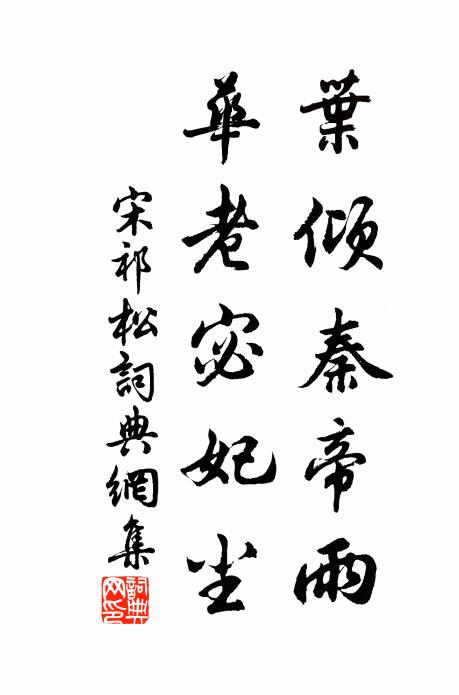 葉傾秦帝雨
華老宓妃尘
宋祁松詞典網集
詞典
网印